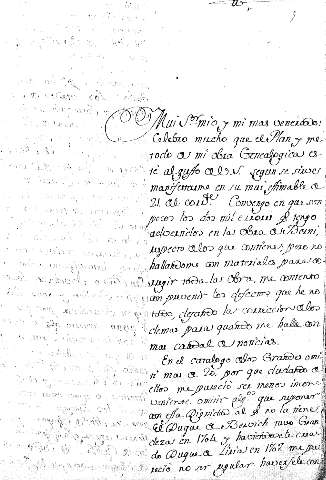 Mui S.r mio, y mi mas venerado:
Celebro mucho que el Plan y me-
todo de mi obra Genealogica es-
té al gusto de V.S. segun se sirve
manifestarme en su mas estimable de
21 del corr.te Convengo en que son
pocos los dos mil errores q. tengo
advertidos en las obras de
respecto a los que contienen, pero no
hallandome con materiales para co-
rregir toda la obra, me contento
con prevenir los defectos que he no-
tado, dejando la correccion de los
demas para quando me halle con
mas caudal de noticias.
En el catalogo de los Grandes omi-
ti mas de 20. por que dudando de
ellos me pareció ser menos incon-
veniente omitir alg.os que suponer
con esta Dignidad al q. no la tiene.
El Duque de Berwich tuvo Gran-
deza en 1704 y haviendosele crea-
do Duque de Liria en 1707 me pa-
reció no ser regular haversele con-